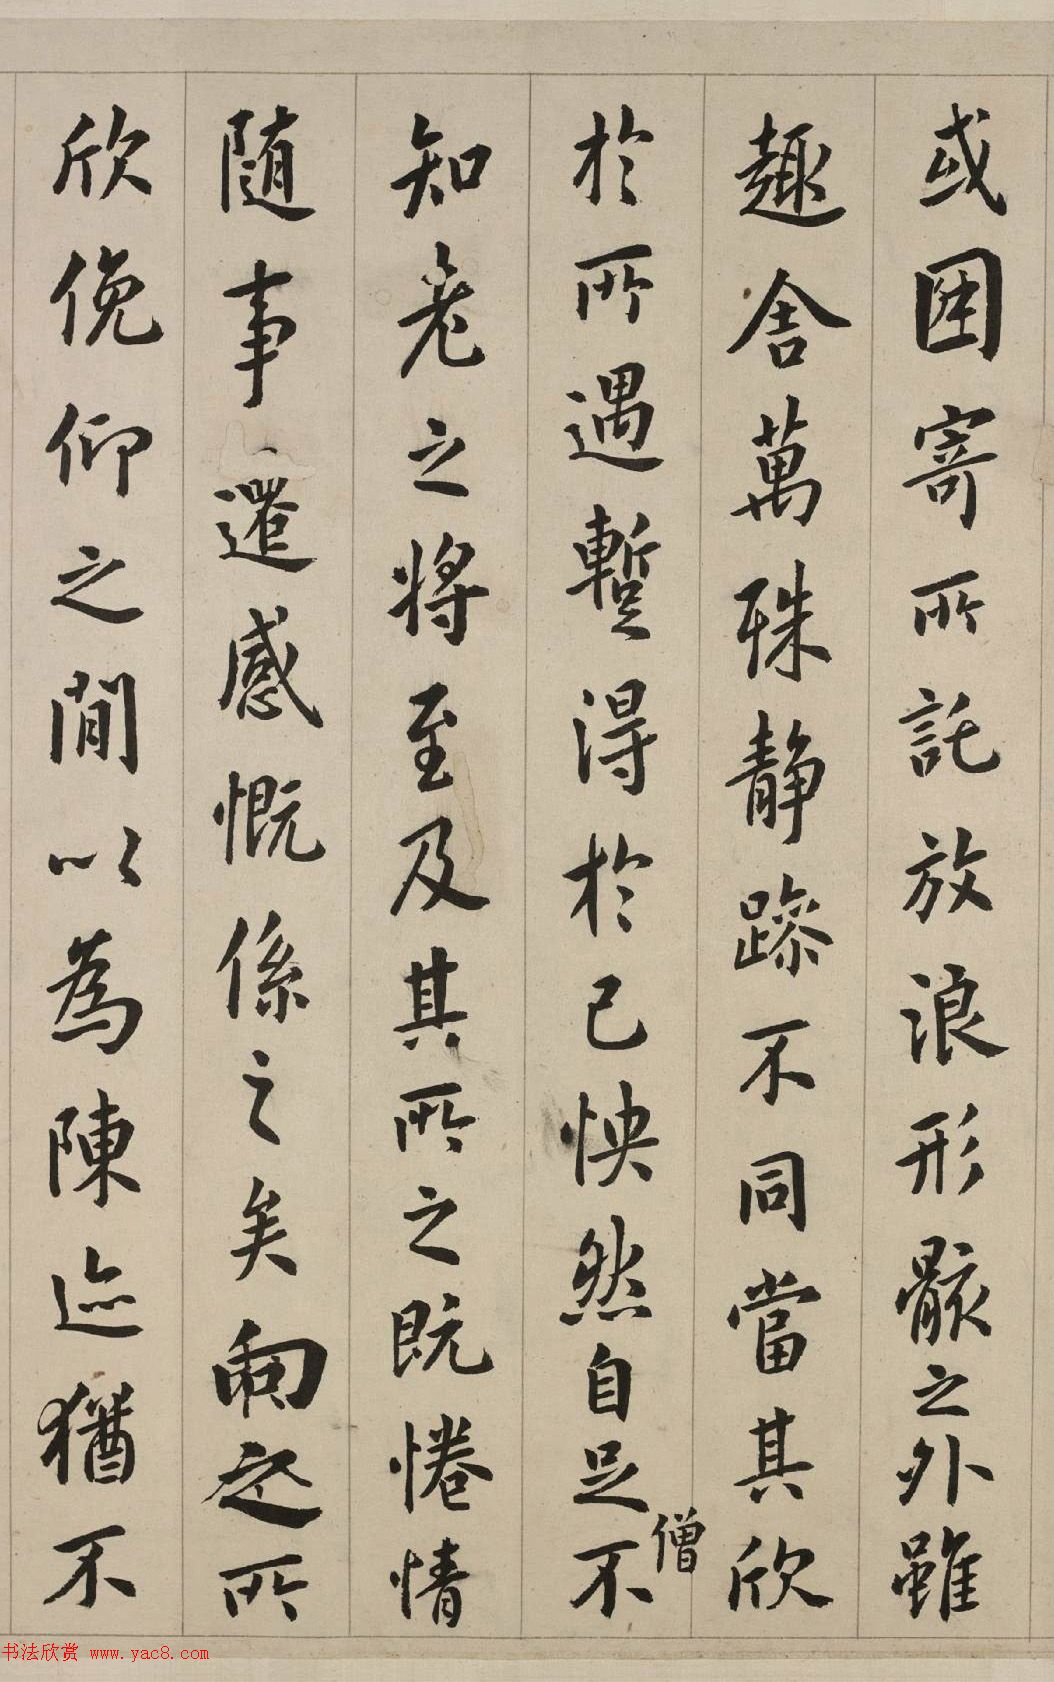 或因寄所託放浪形骸之外雖
趣舍萬殊静躁不同當其欣
於所遇蹔得於己怏然自足不
僧
知老之將至及其所之既惓情
随事遷感慨係之矣向之所
欣俛仰之閒以為陳迹猶不
书法欣赏 www.yac8.com